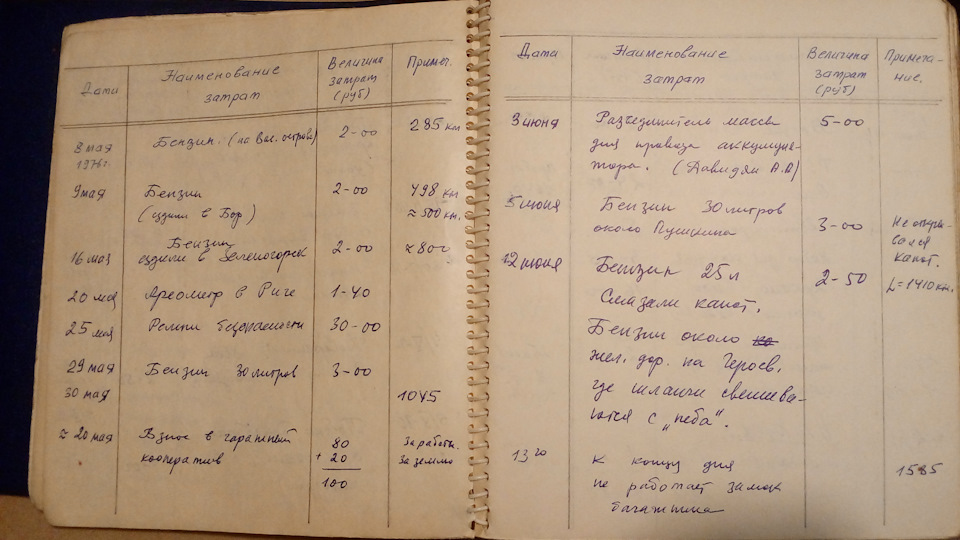 Дата Наименование затрат Величина затрат (руб) Примеч.
8 мая 1976г. Бензин. (на Вас. острове) 2-00 285 км
9 мая Бензин 2-00 498 км
(ездили в Бор) ≈500 км.
Бензин
16 мая ездили в Зеленогорск 2-00 ≈800
20 мая Ареометр в Риге 1-40
25 мая Ремни безопасности 30-00
29 мая Бензин 30 литров 3-00
30 мая 1045
≈20 мая Взнос в гаражный 80 За работы.
кооператив + 20 За землю
100
Дата Наименование затрат Величина затрат (руб) Примеча-
ние.
3 июня Разъединитель массы 5-00
для провода аккумуля-
тора. (Давидян А.А)
5 июня Бензин 30 литров
около Пушкина 3-00 Не откры-
вался
капот.
12 июня Бензин 25 л 2-50 L=1410 км.
Смазали капот.
Бензин около
жел. дор. на Героев,
где шланги свешива-
ются с „неба".
13 го к концу дня 1585
не работает замок
багажника